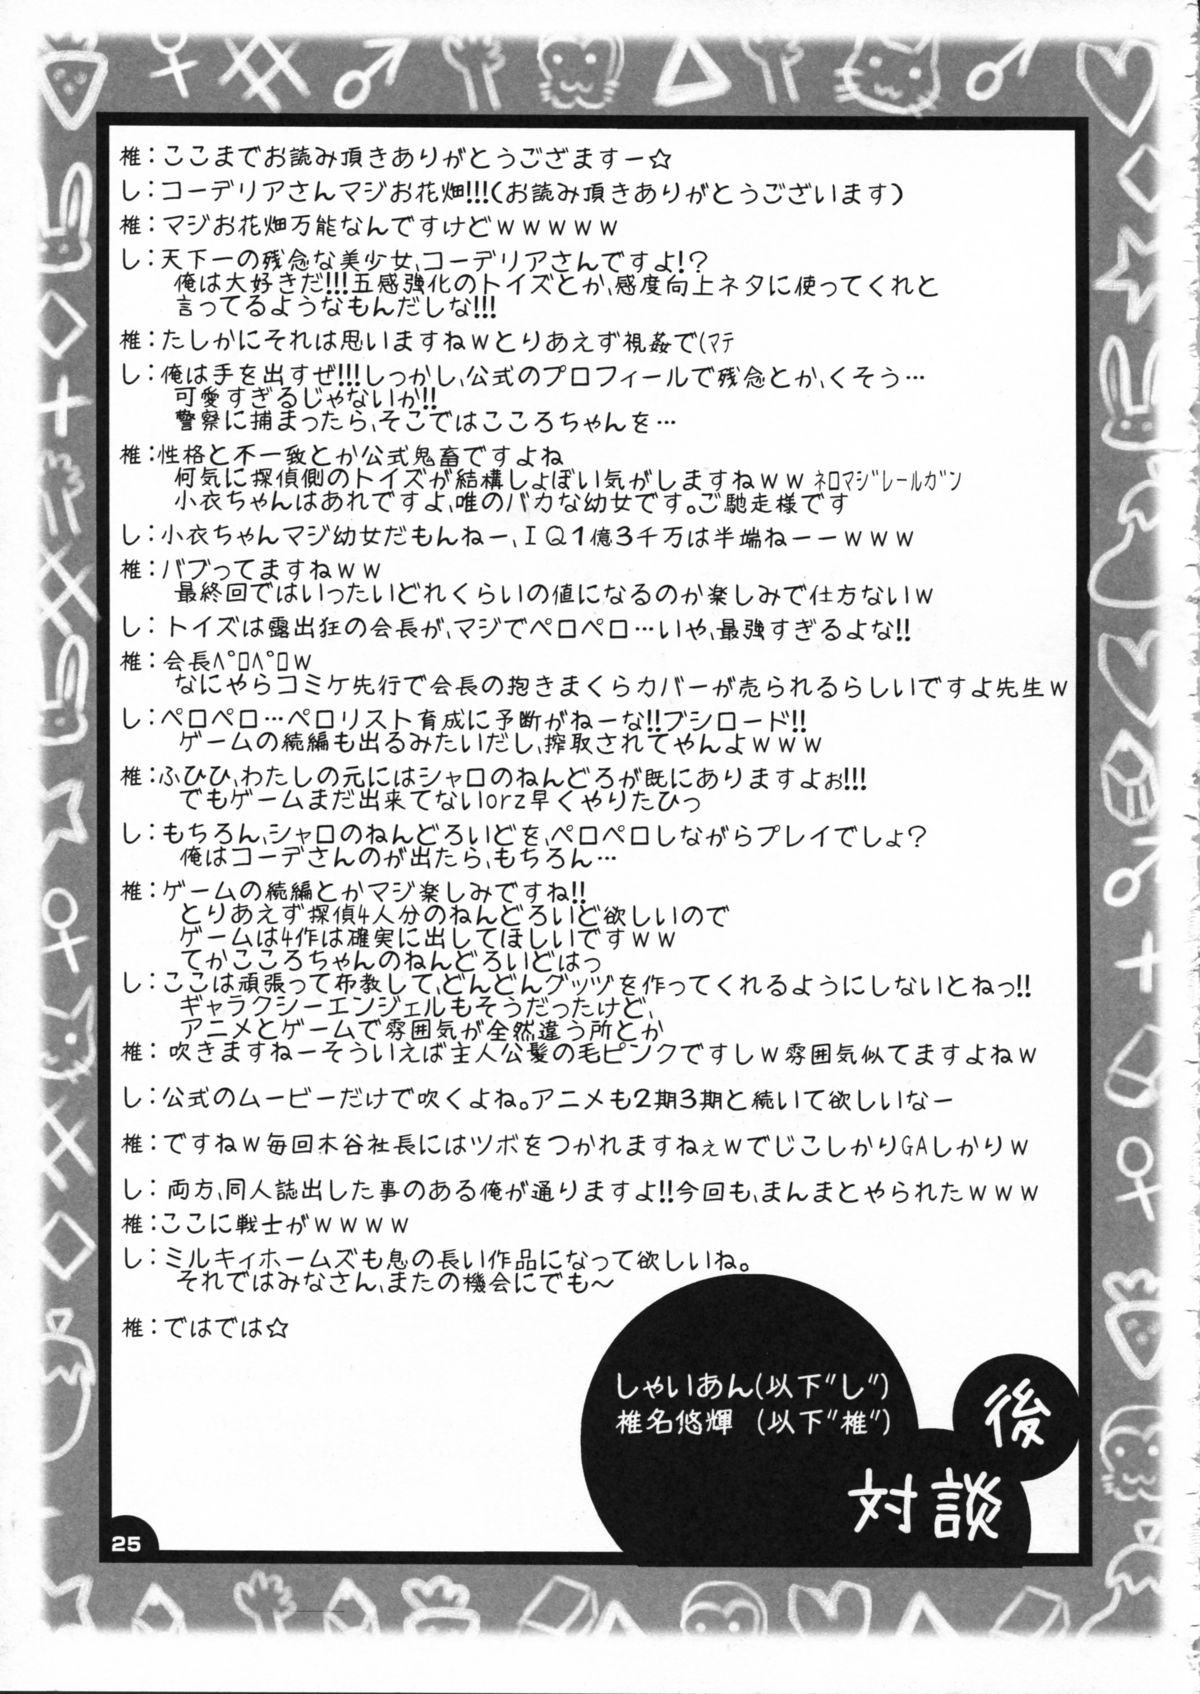 椎：ここまでお読み頂きありがとうござますー☆
し：コーデリアさんマジお花畑!!!(お読み頂きありがとうございます)
椎：マジお花畑万能なんですけどｗｗｗｗｗ
し：天下一の残念な美少女、コーデリアさんですよ!？
俺は大好きだ!!!五感強化のトイズとか、感度向上ネタに使ってくれと
言ってるようなもんだしな!!!
椎：たしかにそれは思いますねｗとりあえず視姦で(ﾏﾃ
し：俺は手を出すぜ!!!しっかし、公式のプロフィールで残念とか、くそう…
可愛すぎるじゃないか!!
警察に捕まったら、そこではこころちゃんを…
椎：性格と不一致とか公式鬼畜ですよね
何気に探偵側のトイズが結構しょぼい気がしますねｗｗ ﾈﾛﾏｼﾞﾚｰﾙｶﾞﾝ
小衣ちゃんはあれですよ、唯のバカな幼女です。ご馳走様です
し：小衣ちゃんマジ幼女だもんねー、ＩＱ1億3千万は半端ねーーｗｗｗ
椎：バブってますねｗｗ
最終回ではいったいどれくらいの値になるのか楽しみで仕方ないｗ
し：トイズは露出狂の会長が、マジでペロペロ…いや、最強すぎるよな!!
椎：会長ﾍﾟﾛﾍﾟﾛｗ
なにやらコミケ先行で会長の抱きまくらカバーが売られるらしいですよ先生ｗ
し：ペロペロ…ペロリスト育成に予断がねーな!!ブシロード!!
ゲームの続編も出るみたいだし、搾取されてやんよｗｗｗ
椎：ふひひ、わたしの元にはシャロのねんどろが既にありますよぉ!!!
でもゲームまだ出来てないorz早くやりたひっ
し：もちろん、シャロのねんどろいどを、ペロペロしながらプレイでしょ？
俺はコーデさんのが出たら、もちろん…
椎：ゲームの続編とかマジ楽しみですね!!
とりあえず探偵4人分のねんどろいど欲しいので
ゲームは4作は確実に出してほしいですｗｗ
てかこころちゃんのねんどろいどはっ
し：ここは頑張って布教して、どんどんグッヅを作ってくれるようにしないとねっ!!
ギャラクシーエンジェルもそうだったけど、
アニメとゲームで雰囲気が全然違う所とか
椎：吹きますねーそういえば主人公髪の毛ピンクですしｗ雰囲気似てますよねｗ
し：公式のムービーだけで吹くよね。アニメも2期3期と続いて欲しいなー
椎：ですねｗ毎回木谷社長にはツボをつかれますねぇｗでじこしかりGAしかりｗ
し：両方、同人誌出した事のある俺が通りますよ!!今回も、まんまとやられたｗｗｗ
椎：ここに戦士がｗｗｗｗ
し：ミルキィホームズも息の長い作品になって欲しいね。
それではみなさん、またの機会にでも～
椎：ではでは☆
しゃいあん(以下"し")
椎名悠輝 (以下"椎")
後
対談
25